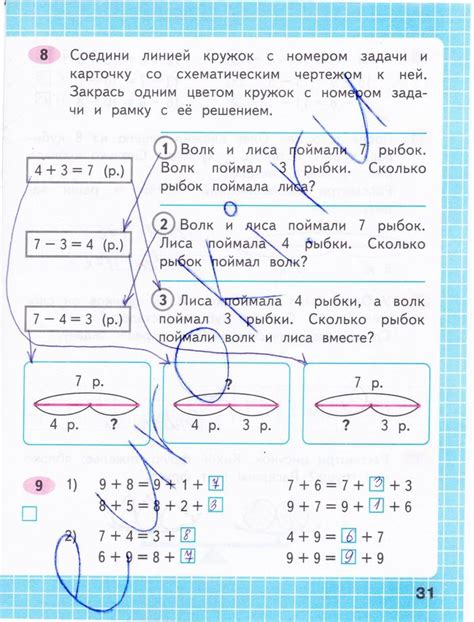 8 Соедини линией кружок с номером задачи и
карточку со схематическим чертежом к ней.
Закрась одним цветом кружок с номером зада-
чи и рамку с её решением.
4 + 3 = 7 (р.)
7 − 3 = 4 (р.)
7 − 4 = 3 (р.)
1 Волк и лиса поймали 7 рыбок.
Волк поймал 3 рыбки. Сколько
рыбок поймала лиса?
2 Волк и лиса поймали 7 рыбок.
Лиса поймала 4 рыбки. Сколько
рыбок поймал волк?
3 Лиса поймала 4 рыбки, а волк
поймал 3 рыбки. Сколько рыбок
поймали волк и лиса вместе?
7 р.
4 р. ?
?
4 р. 3 р.
7 р.
? 3 р.
9 1) 9 + 8 = 9 + 1 + 7 7 + 6 = 7 + 3 + 3
8 + 5 = 8 + 2 + 3 9 + 7 = 9 + 1 + 6
2) 7 + 4 = 3 + 8 4 + 9 = 6 + 7
6 + 9 = 8 + 7 9 + 9 = 9 + 9
31